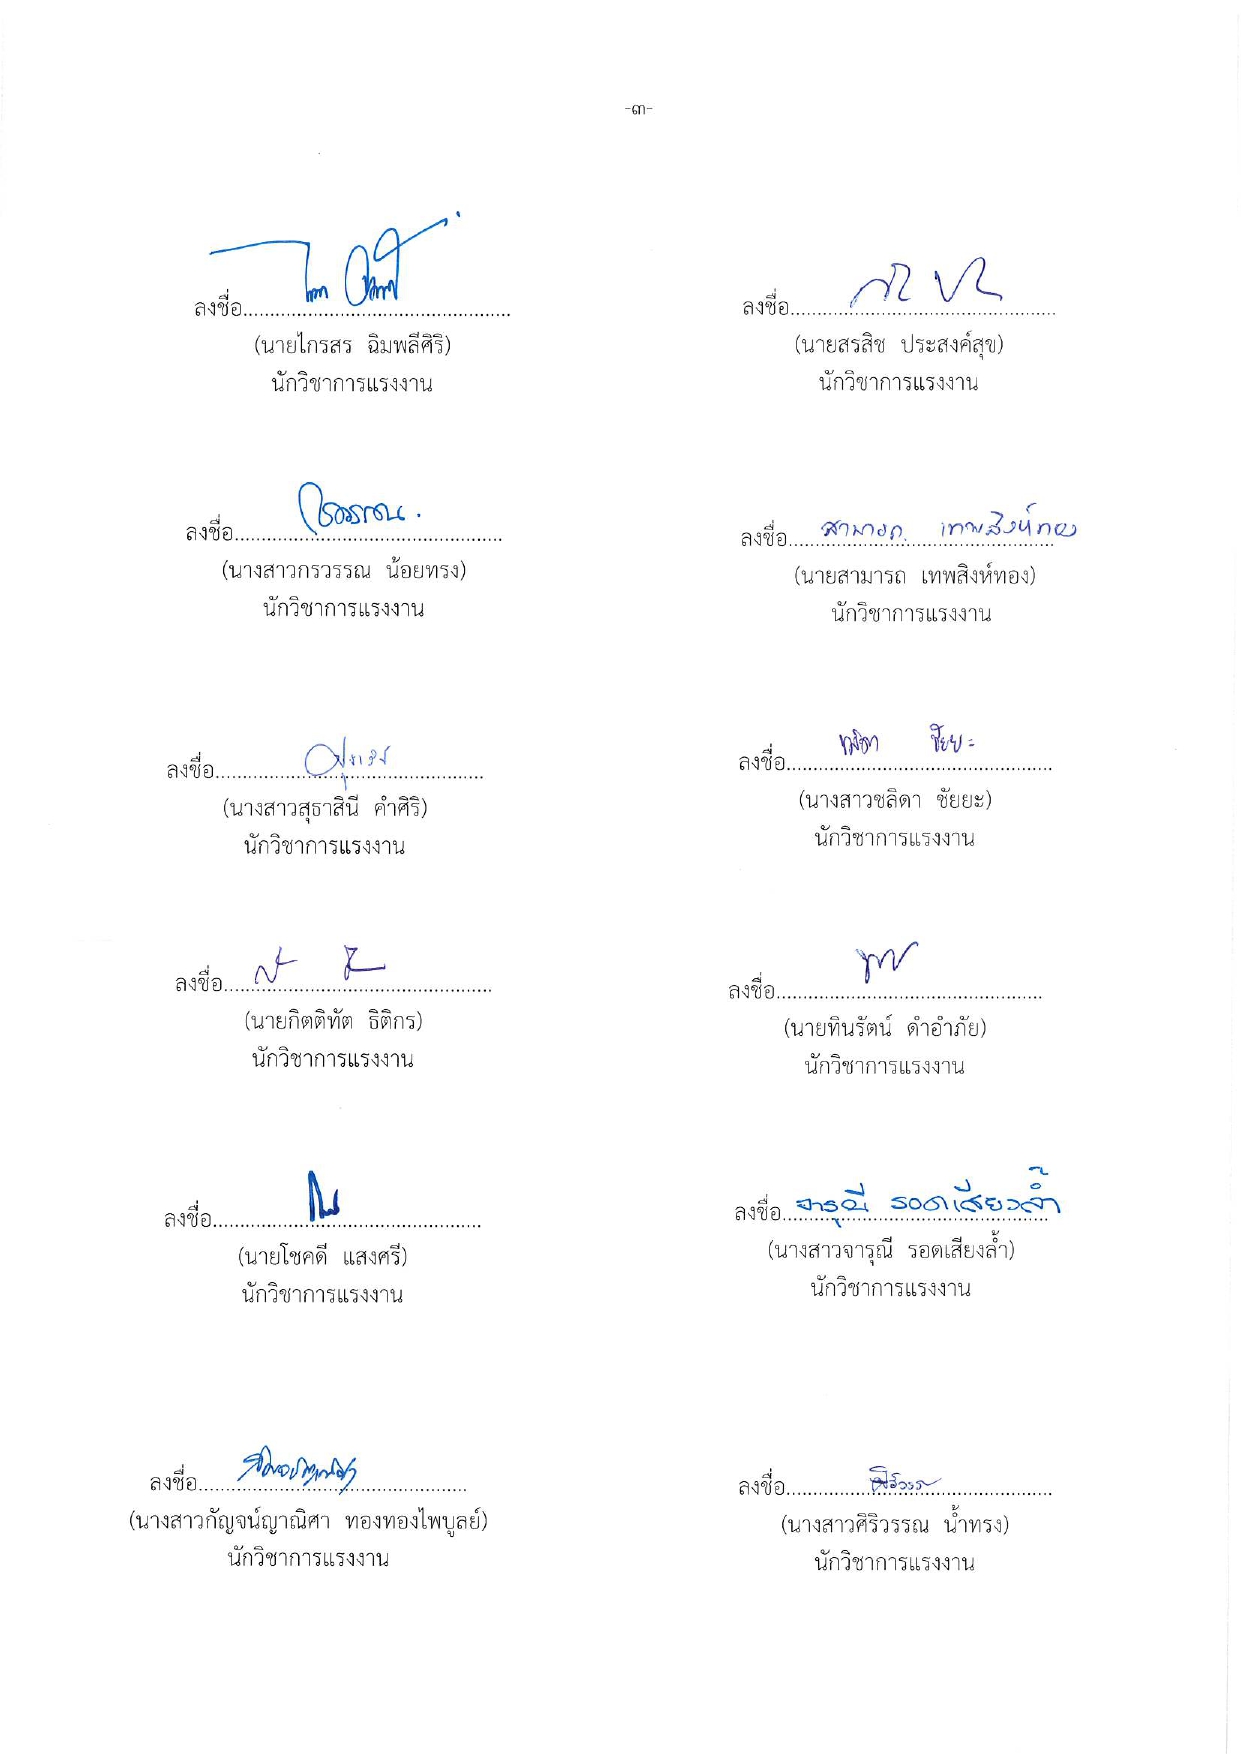 -๓-
ลงชื่อ................................................
(นายไกรสร ฉิมพลีศิริ)
นักวิชาการแรงงาน
ลงชื่อ................................................
(นายสรสิช ประสงค์สุข)
นักวิชาการแรงงาน
ลงชื่อ................................................
(นางสาวกรวรรณ น้อยทรง)
นักวิชาการแรงงาน
ลงชื่อ สามารถ เทพสิงห์ทอง
(นายสามารถ เทพสิงห์ทอง)
นักวิชาการแรงงาน
ลงชื่อ................................................
(นางสาวสุธาสินี คำศิริ)
นักวิชาการแรงงาน
ลงชื่อ................................................
(นางสาวชลิดา ชัยยะ)
นักวิชาการแรงงาน
ลงชื่อ................................................
(นายกิตติทัต ธิติกร)
นักวิชาการแรงงาน
ลงชื่อ................................................
(นายทินรัตน์ ดำอำภัย)
นักวิชาการแรงงาน
ลงชื่อ................................................
(นายโชคดี แสงศรี)
นักวิชาการแรงงาน
ลงชื่อ จารุณี รอดเสียงล้ำ
(นางสาวจารุณี รอดเสียงล้ำ)
นักวิชาการแรงงาน
ลงชื่อ................................................
(นางสาวกัญจน์ญาณิศา ทองทองไพบูลย์)
นักวิชาการแรงงาน
ลงชื่อ ศิริวรรณ
(นางสาวศิริวรรณ น้ำทรง)
นักวิชาการแรงงาน